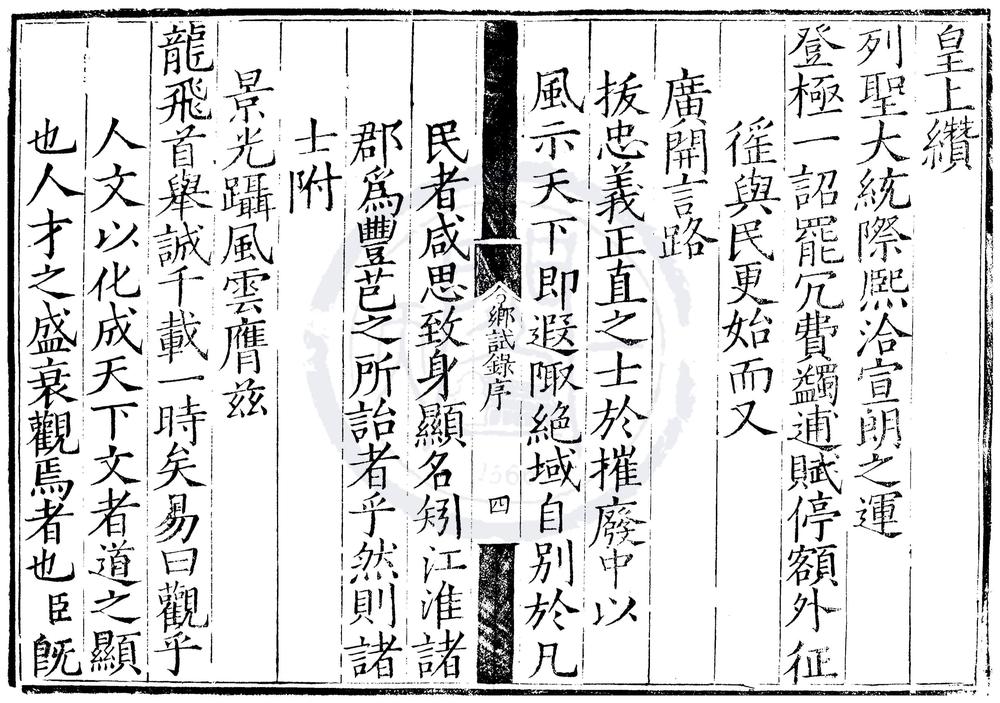 皇上纘
列聖大統際熙洽宣朗之運
登極一詔罷冗費蠲逋賦停額外征
徭與民更始而又
廣開言路
拔忠義正直之士於摧廢中以
風示天下即遐陬絕域自别於凡
鄉試錄序
四
民者咸思致身顯名矧江淮諸
郡爲豐芑之所詒者乎然則諸
士附
景光躡風雲膺兹
龍飛首舉誠千載一時矣易曰觀乎
人文以化成天下文者道之顯
也人才之盛衰觀焉者也臣旣